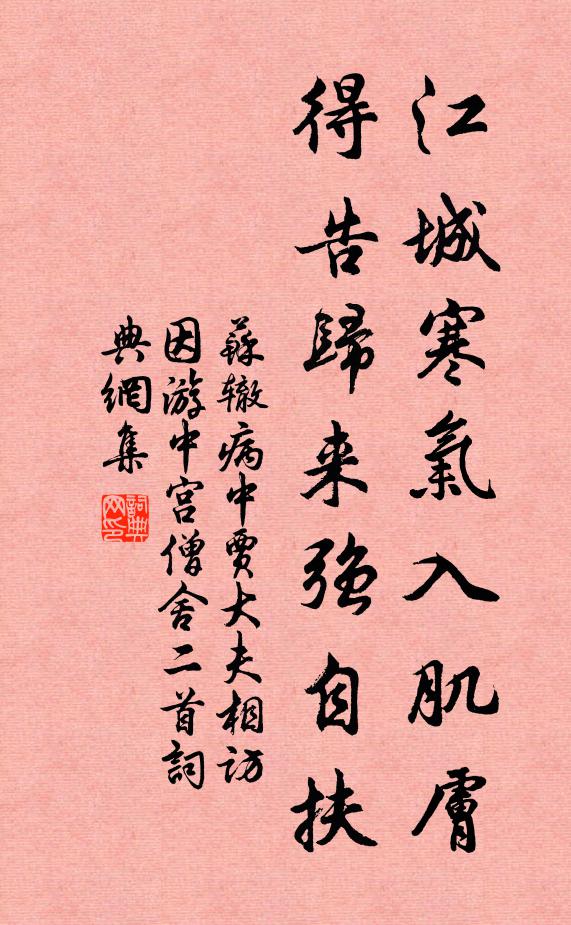 江城寒氣入肌膚
得告歸来強自扶
蘇辙病中賈大夫相訪
因游中宫僧舍二首詞
典網集
詞典
网印